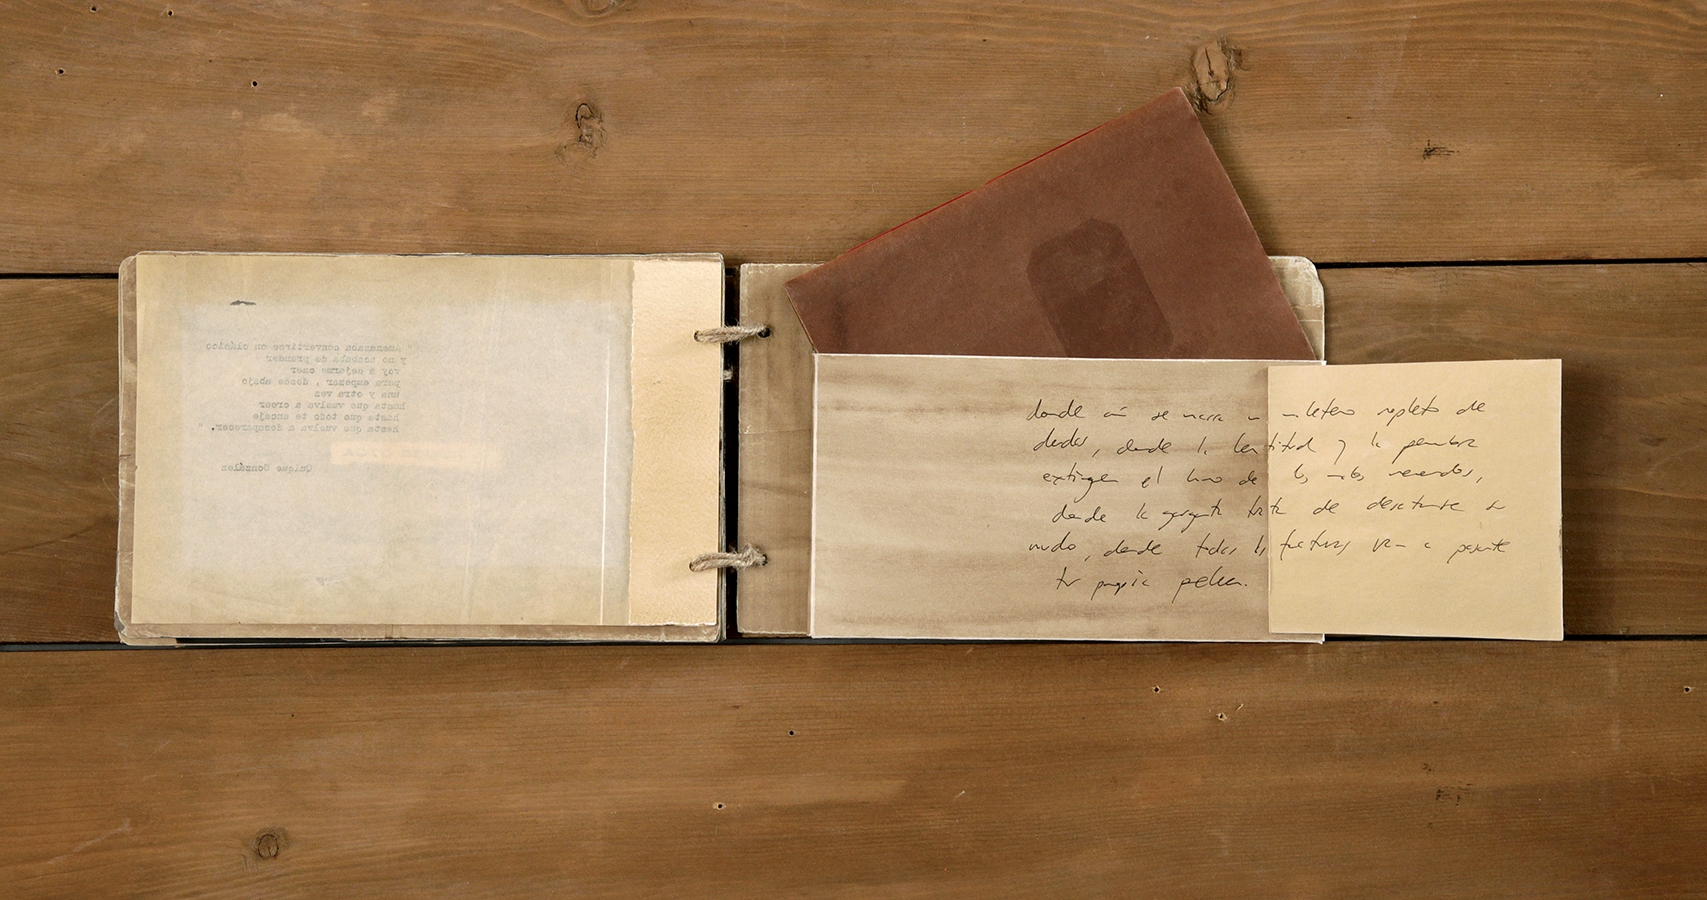 " Amenazan convertirse en clásico
y no acabate de prender
voy a dejarme caer
para empezar , desde abajo
una y otra vez
hasta que vuelva a creer
hasta que todo te encaje
hasta que vuelva a desaparecer. "
Quique González
donde aún se narra un maletero repleto de
dudas, donde la lentitud y la penumbra
extinguen el humo de los malos recuerdos,
donde la garganta trata de desatarse un
nudo, donde todas las facturas van a pagarte
tu propia pelea.